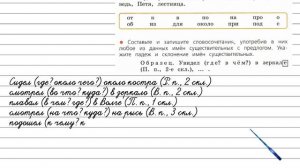 ведь, Петя, лестница.
от к в по на про о
об из для около при под с
Составьте и запишите словосочетания, употребив в них любое из данных имён существительных с предлогом. Укажите падеж и склонение имён существительных.
Образец. Увидел (где? в чём?) в зеркале
(П. п., 2-е скл.), ... .
Сидел (где? около чего?) около костра (Р. п., 2 скл.)
смотрел (во что? куда?) в зеркало (В. п., 2 скл.)
плавал (в чем? где?) в Волге (П. п., 1 скл.)
смотрел (на что? куда?) на рысь (В. п., 3 скл.)
подошел (к чему? к